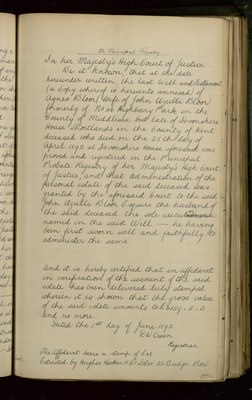 The Principal Registry
In her Majesty's High Court of Justice
Be it Known, that at the date
hereunder written, the Last Will and Testament
(a Copy whereof is hereunto annexed) of
Agnes Bloor Wife of John
formerly of Highbury Park in the
County of Middlesex but late of Devonshire
House Broadstairs in the County of Kent
deceased who died on the day of
April 1892 at Devonshire House aforesaid was
proved and registered in the Principal
Probate Registry of her Majesty's High Court
of Justice, and that administration of the
personal estate of the said deceased was
granted by the aforesaid Court to the said
John Bloor Esquire the husband of
the said deceased the sole
named in the said Will — he having
been first sworn well and faithfully to
administer the same
And it is hereby certified that an affidavit
in verification of the account of the said
estate has been delivered duly stamped
wherein it is shown that the gross value
of the said estate amounts to
and no more
Dated the 1st day of June 1892
Registrar
The affidavit bears a stamp of
Extracted by Hughes Hooker & Co Solrs 26 Budge Row